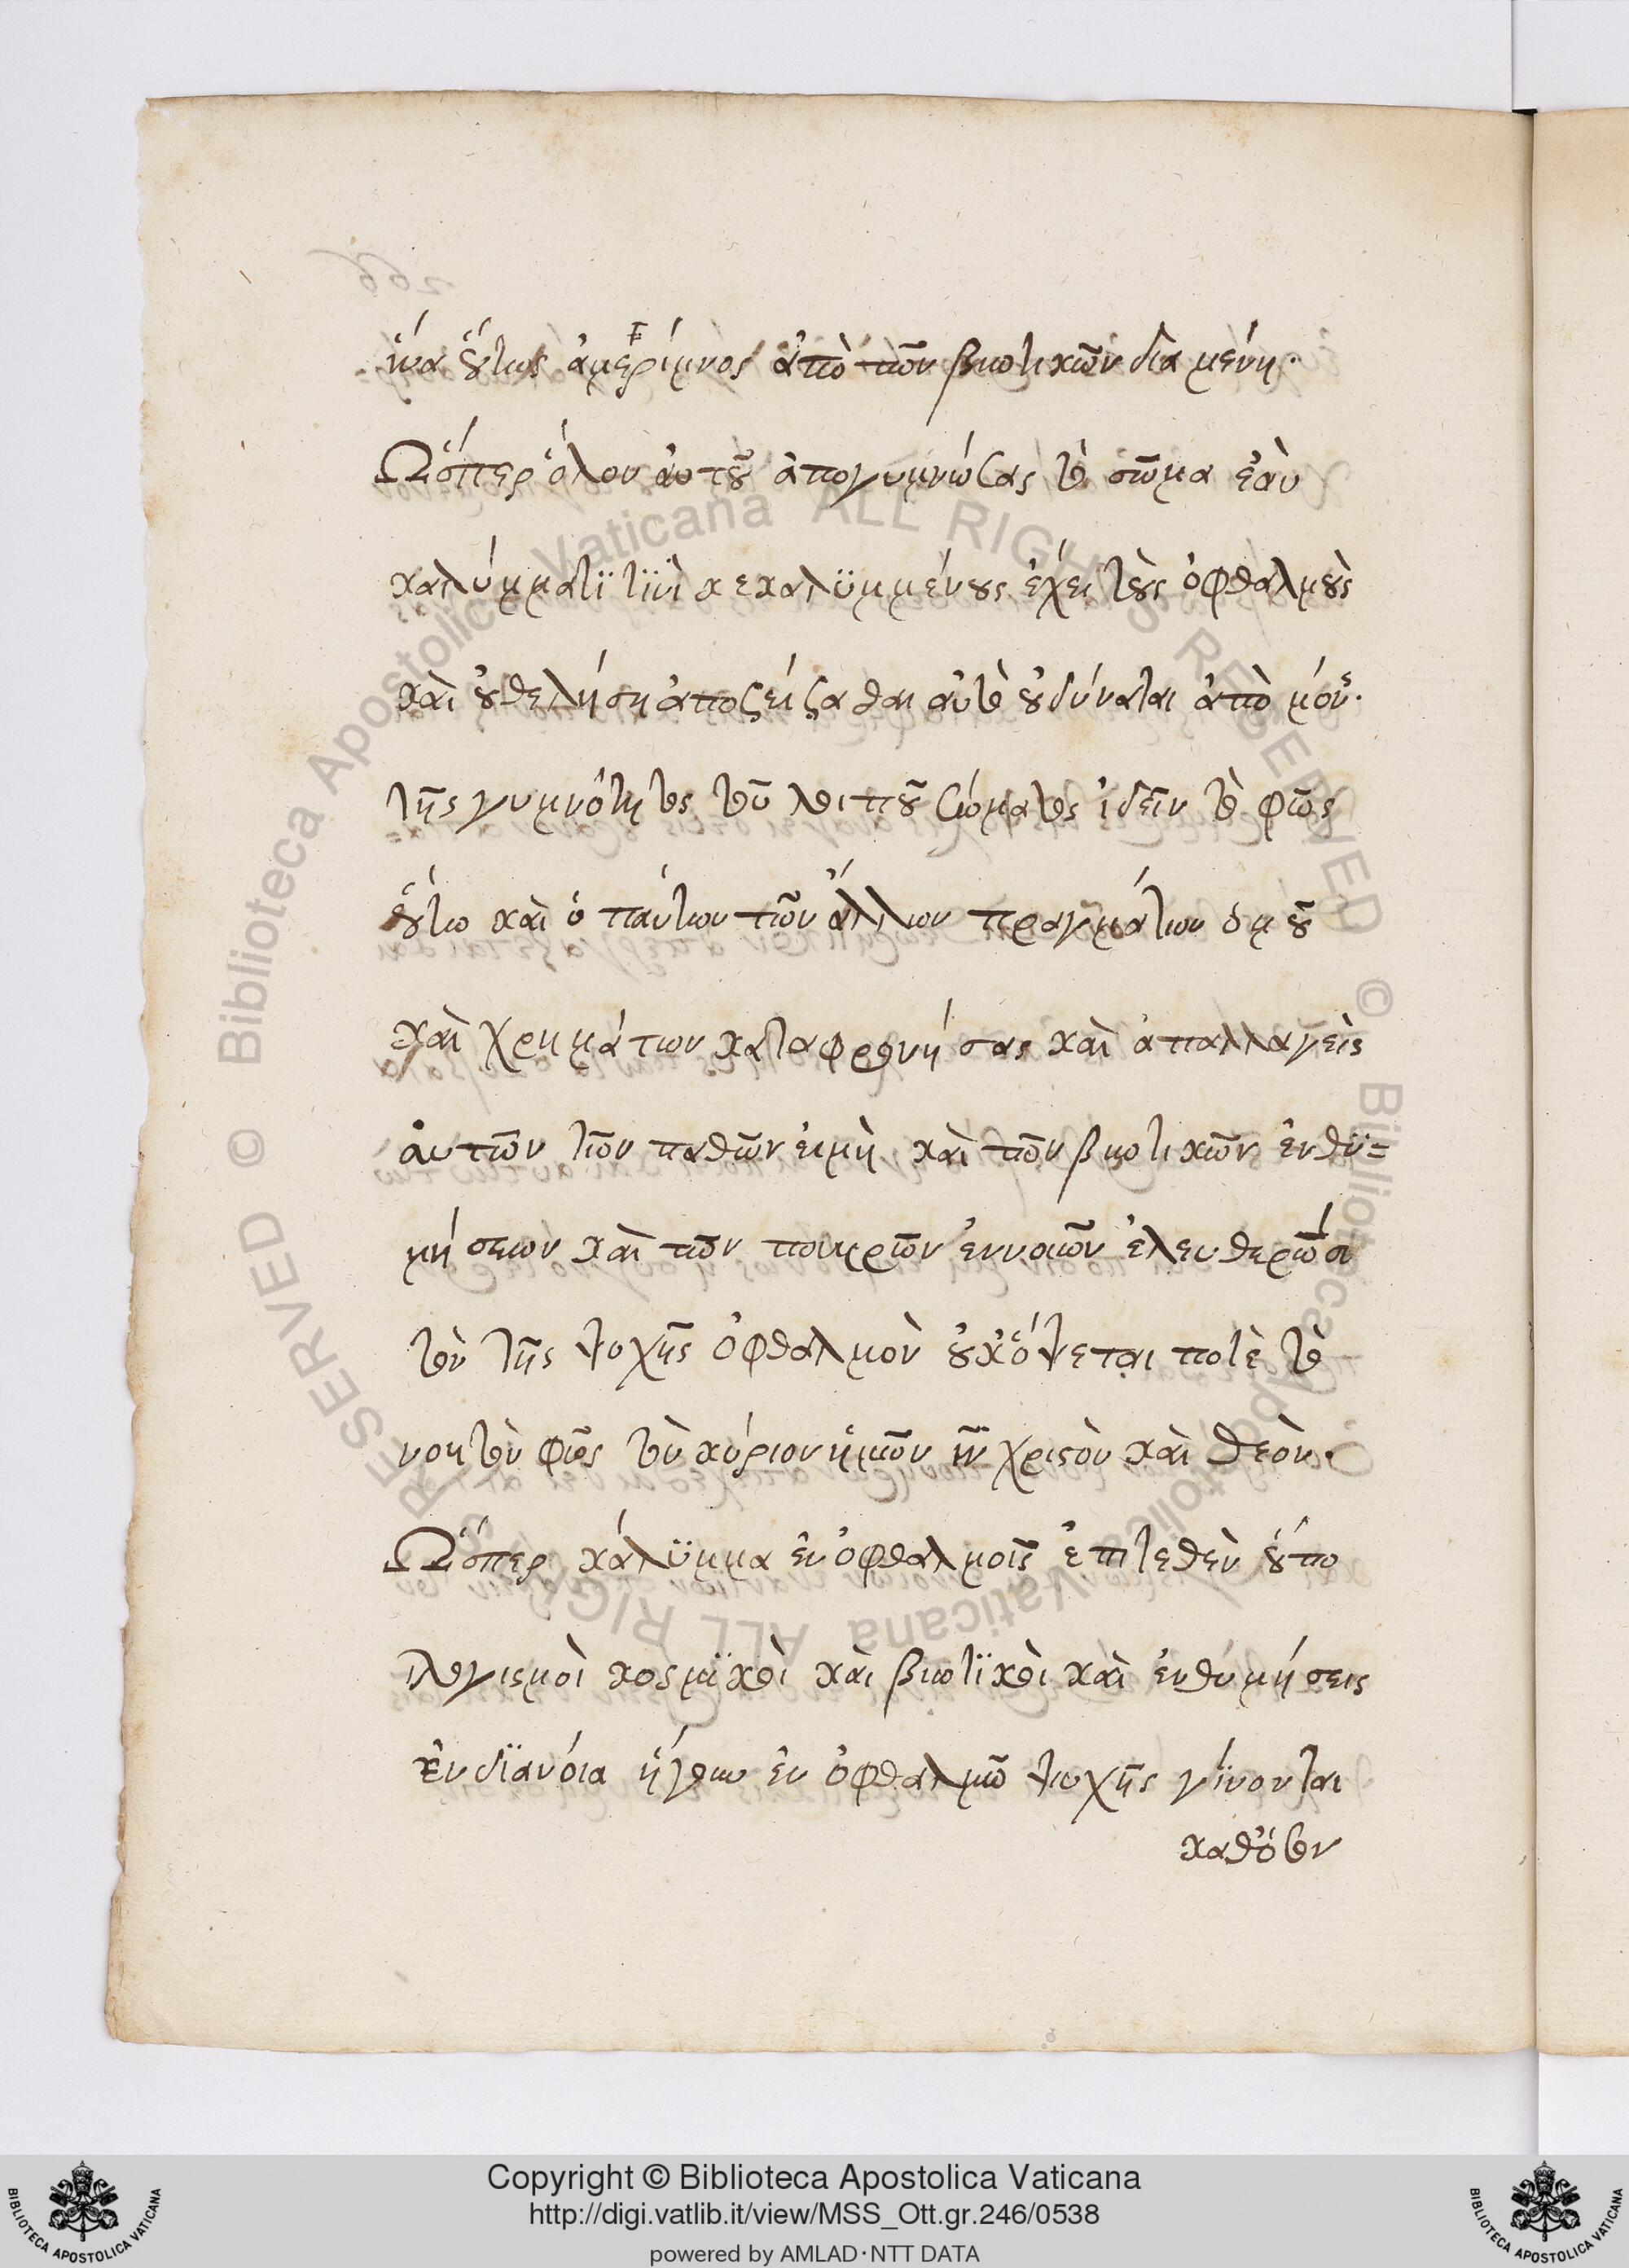 ἵνα οὕτως ἀμέριμνος ἀπὸ τῶν βιωτικῶν δια μένη.
Ὥσπερ ὅλον αὐτοῦ ἀπογυμνώσας τὸ σῶμα ἐὰν
καλύμματϊ τϊνὶ κεκαλϋμμένους ἔχει τοὺς ὀφθαλμοὺς
καὶ οὐ θελήση ἀπο αὐτὸ οὐ δύναται ἀπὸ μόν
τῆς γυμνότητος τοῦ λοιποῦ σώματος ἰδεῖν τὸ φῶς
οὕτω καὶ ὁ πάντων τῶν ἄλλων πραγμάτων ὁμοῦ
καὶ χρημάτων καταφρονήσας καὶ ἀπαλλαγεὶς
αὐτῶν τῶν παθῶν εἰ μὴ καὶ τῶν βιωτικῶν ἐνθϋ=
μήσεων καὶ τῶν πονηρῶν ἐννοιῶν ἐλευθερώσι
τὸν τῆς ψυχῆς ὀφθαλμὸν οὐκ ὄψεται ποτὲ τὸ
νοητὸν φῶς τὸν κύριον ἡμῶν ἰν̅ χριστὸν καὶ θεὸν.
Ὥσπερ κάλϋμμα ἐν ὀφθαλμοῖς ἐπιτεθὲν οὕτω
λογισμοὶ κοσμϊκοὶ καὶ βιωτϊκοὶ καὶ ἐνθυμήσεις
ἐν δϊανόια ἤγουν ἐν ὀφθαλμῶ ψυχῆς γίνονται
καθ' ὅσον
© Biblioteca Apostolica Vaticana ALL RIGHTS RESERVED © Biblioteca Apostolica Vaticana ALL RIGHTS RESERVED
Copyright © Biblioteca Apostolica Vaticana
http://digi.vatlib.it/view/MSS_Ott.gr.246/0538
powered by AMLAD·NTT DATA
BIBLIOTECA APOSTOLICA VATICANA
BIBLIOTECA APOSTOLICA VATICANA